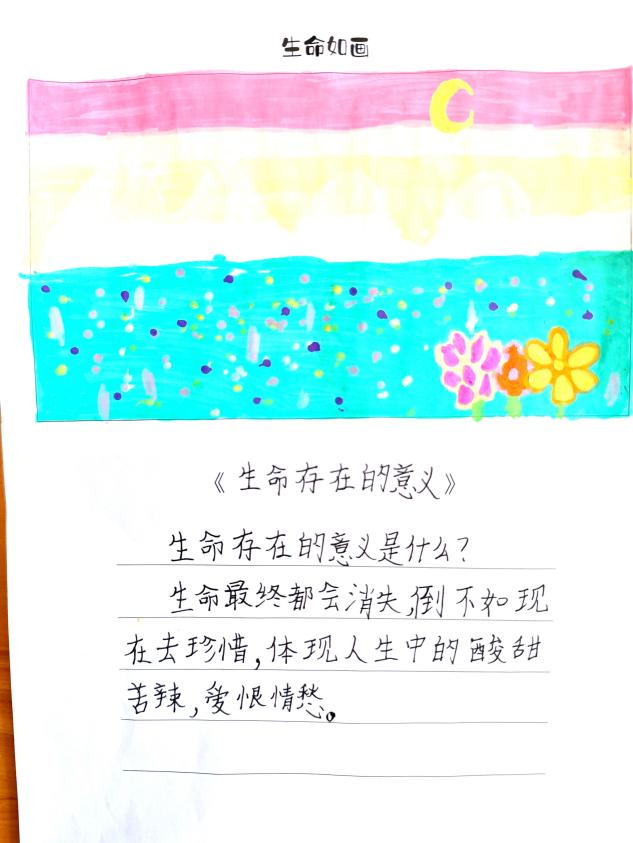 生命如画
《生命存在的意义》
生命存在的意义是什么?
生命最终都会消失,倒不如现
在去珍惜,体现人生中的酸甜
苦辣,爱恨情愁。